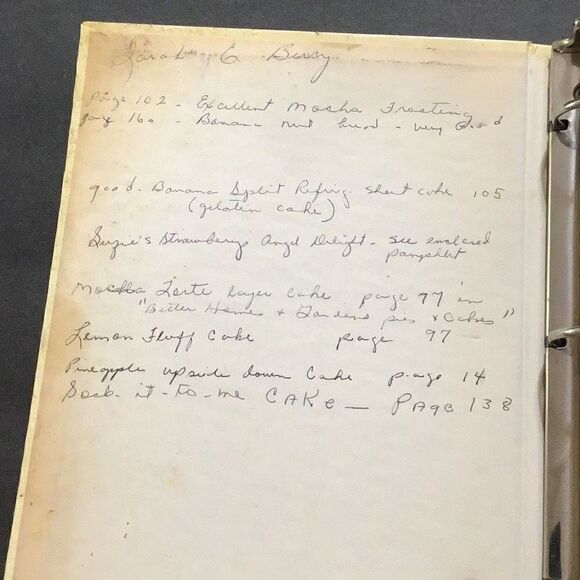 Sarah E Berry
Page 102 - Excellent Mocha Frosting
Page 160 - Banana nut bread - very Good
good - Banana Split Refrig. sheet cake 105
(gelatin cake)
Suzie's Strawberry Angel Delight - see enclosed
pamphlet
Mocha Torte layer cake page 97 in
"Better Homes & Gardens pies & Cakes"
Lemon Fluff Cake page 97
Pineapple upside down Cake page 14
Sock-it-to-me CAKe — PAge 138